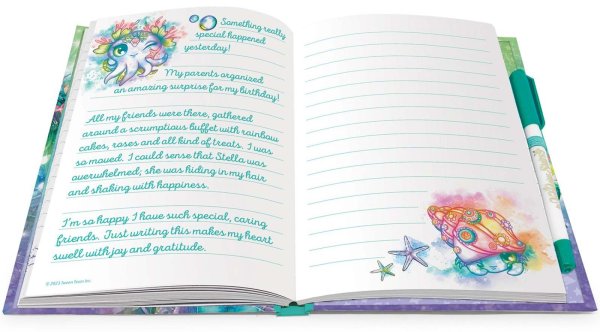 Something really
special happened
yesterday!
My parents organized
an amazing surprise for my birthday!
All my friends were there, gathered
around a scrumptious buffet with rainbow
cakes, roses and all kind of treats. I was
so moved. I could sense that Stella was
overwhelmed; she was hiding in my hair
and shaking with happiness.
I'm so happy I have such special, caring
friends. Just writing this makes my heart
swell with joy and gratitude.